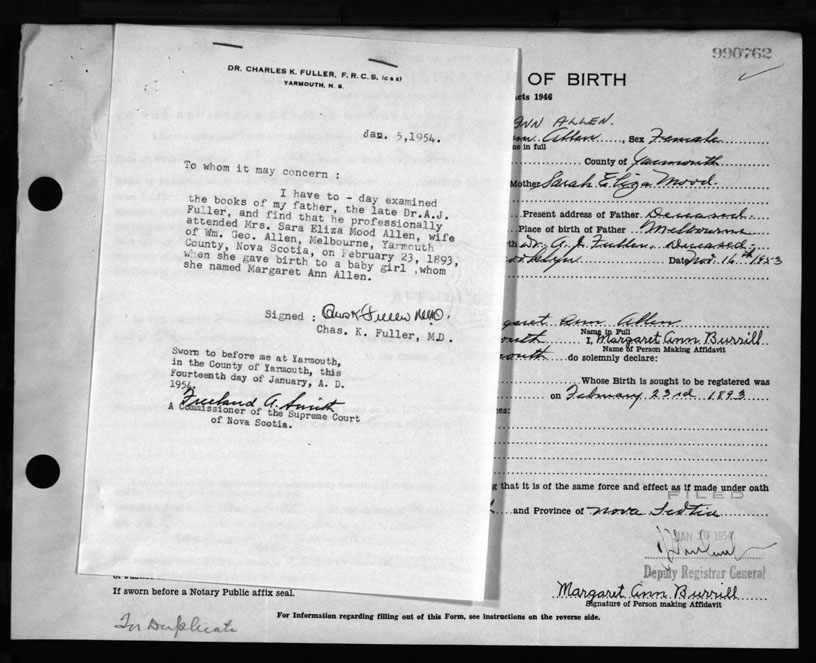 DR. CHARLES K. FULLER, F.R.C.S. (C&E)
YARMOUTH, N. S.
Jan. 5,1954.
To whom it may concern :
I have to - day examined
the books of my father, the late Dr.A.J.
Fuller, and find that he professionally
attended Mrs. Sara Eliza Mood Allen, wife
of Wm. Geo. Allen, Melbourne, Yarmouth
County, Nova Scotia, on February 23, 1893,
when she gave birth to a baby girl ,whom
she named Margaret Ann Allen.
Signed : Chas K Fuller M.D.
Chas. K. Fuller, M.D.
Sworn to before me at Yarmouth,
in the County of Yarmouth, this
Fourteenth day of January, A. D.
1954.
Freeland A. Smith
A Commissioner of the Supreme Court
of Nova Scotia.
990762
OF BIRTH
Acts 1946
ANN ALLEN.
Ann Allen, Sex Female
me in full
County of Yarmouth
Mother Sarah Eliza Mood.
Present address of Father Deceased.
Place of birth of Father Melbourne
Dr. A. J. Fuller. Deceased.
Brooklyn Date Nov. 16th 1953
garet Ann Allen
Name in Full
outh I, Margaret Ann Burrill
Name of Person Making Affidavit
mouth do solemnly declare:
Whose Birth is sought to be registered was
on February 23rd 1893
ces:
g that it is of the same force and effect as if made under oath
FILED
and Province of Nova Scotia
JAN 16 1954
Deputy Registrar General
If sworn before a Notary Public affix seal.
Margaret Ann Burrill
Signature of Person making Affidavit
For Information regarding filling out of this Form, see instructions on the reverse side.
In Duplicate